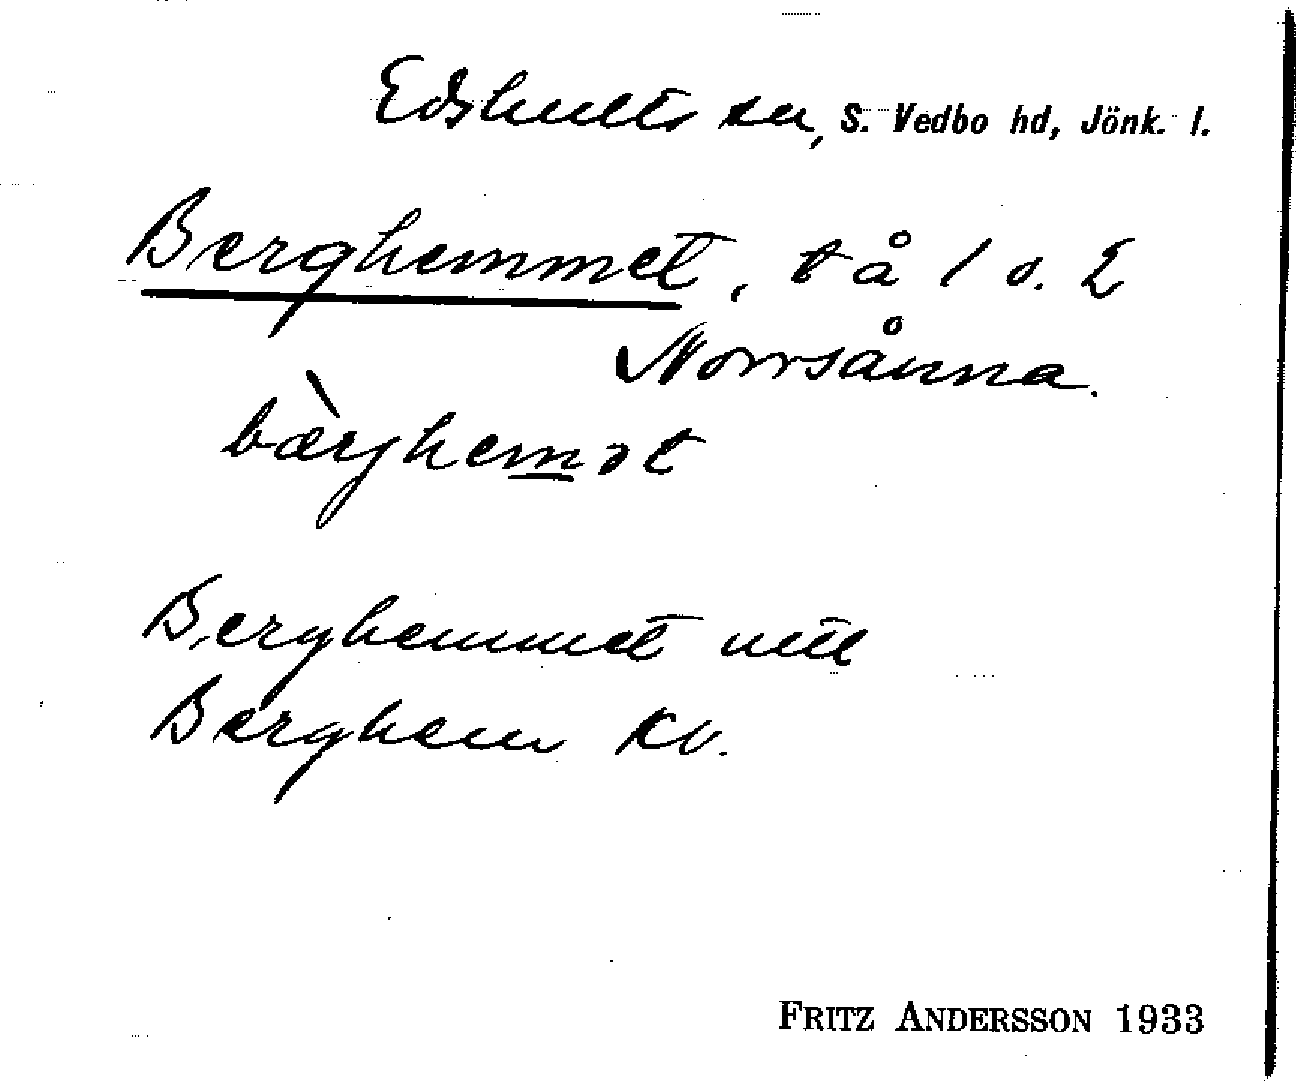 Edshults sn, S. Vedbo hd, Jönk. l.
Berghemmet, t å 1 o. 2
Norrsånna.
bæ̀rjhemət
Berghemmet
Berghem KV.
FRITZ ANDERSSON 1933